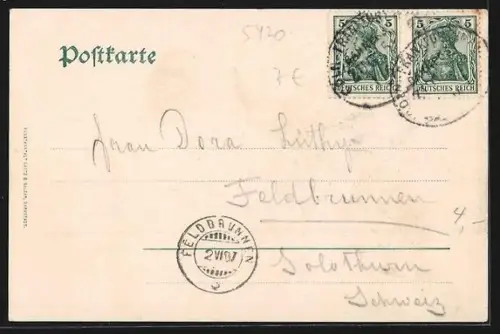 5920
5 5
5 5
DEUTSCHES REICH
DEUTSCHES REICH
Postkarte
7 €
Frau Dora Lüthy
Feldbrunnen
4,-
FELDBRUNNEN
2 VI 07
Solothurn
Schweiz